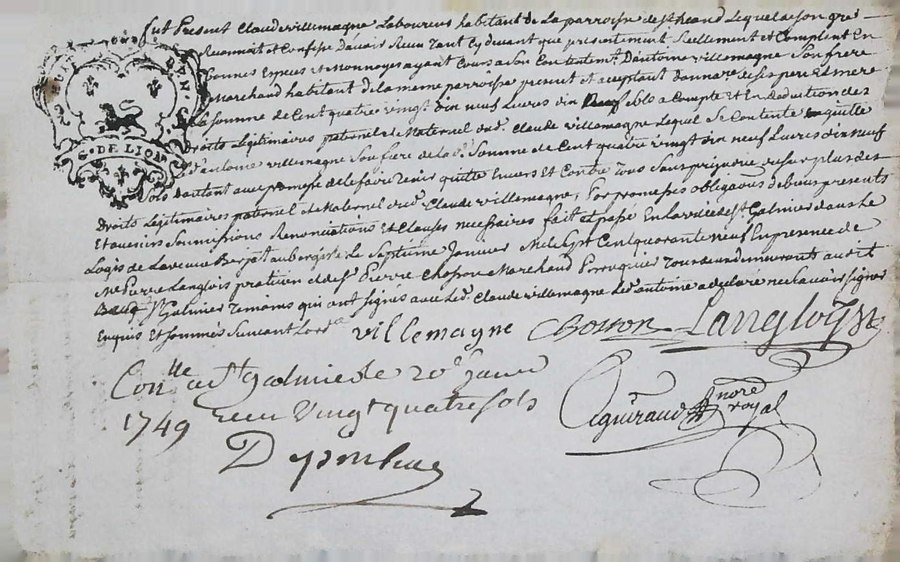 Fut Present Claude villemagne Laboureur habitant de La parroisse de st heand Lequel de son gré
Reconnoit et Confesse D'avoir Receu tant Cy devant que presentement Reellement et Comptent En
bonnes Especes et Monnoyes ayant Cours a Son Contentemt. D'antoine villemagne Son frere
Marchand habitant de la meme parroisse present et aceptant donnare de ses pere et mere
La somme de Cent quatre vingt dix neuf Livres dix neuf sols a Compte et En deduction des
Droits Legitimaires paternel et Maternel dud. Claude villemagne Lequel Se Contente quitte
D'antoine villemagne Son frere de la de. Somme de Cent quatre vingt dix neuf Livres dix neuf
Sols dautant avec promesse de le faire tenir quitte Envers et Contre tous Sans prejudice du surplus des
Droits Legitimaires paternel et Maternel dud. Claude villemagne, Par promesses obligaons de biens presents
Et avenir Soumissions Renonciations et Clauses necessaires fait et passé En La ville de st Galmier dans Le
Logis de La veuve aubergiste Le Septieme Janvier Mil Sept Cent quarante neuf En presence de
Me Pierre Langlois praticien et de Sr Pierre Chosson Marchand Perruquier Tous deux demeurants audit
St Galmier temoins qui ont signés avec Led. Claude villemagne Led. antoine a declaré ne scavoir signer
Enquis Et Sommés Suivant Lordce
villemagne Chosson Langloys
Conlle a st galmier le 20e janvr
1749 receu Vingt quatre sols
Aguiraud nore royal
G. DE LION